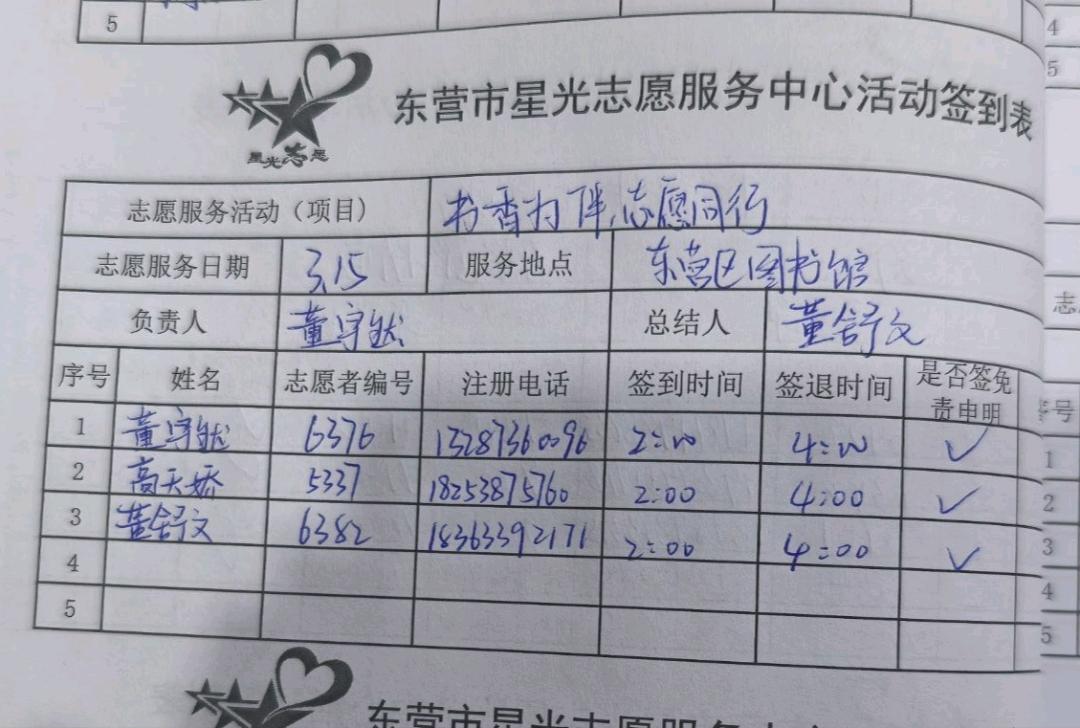 5
星光志愿
东营市星光志愿服务中心活动签到表
志愿服务活动（项目） 书香为伴,志愿同行
志愿服务日期 3.15 服务地点 东营区图书馆
负责人 董宇 总结人 董舒文
序号 姓名 志愿者编号 注册电话 签到时间 签退时间 是否签免责申明
1 董宇 6376 13287360096 2:00 4:00 ✓
2 高天娇 5337 18253875760 2:00 4:00 ✓
3 董舒文 6382 18363392171 2:00 4:00 ✓
4
5
东营市星光志愿服务中心
4
5
志
号
1
2
3
4
5